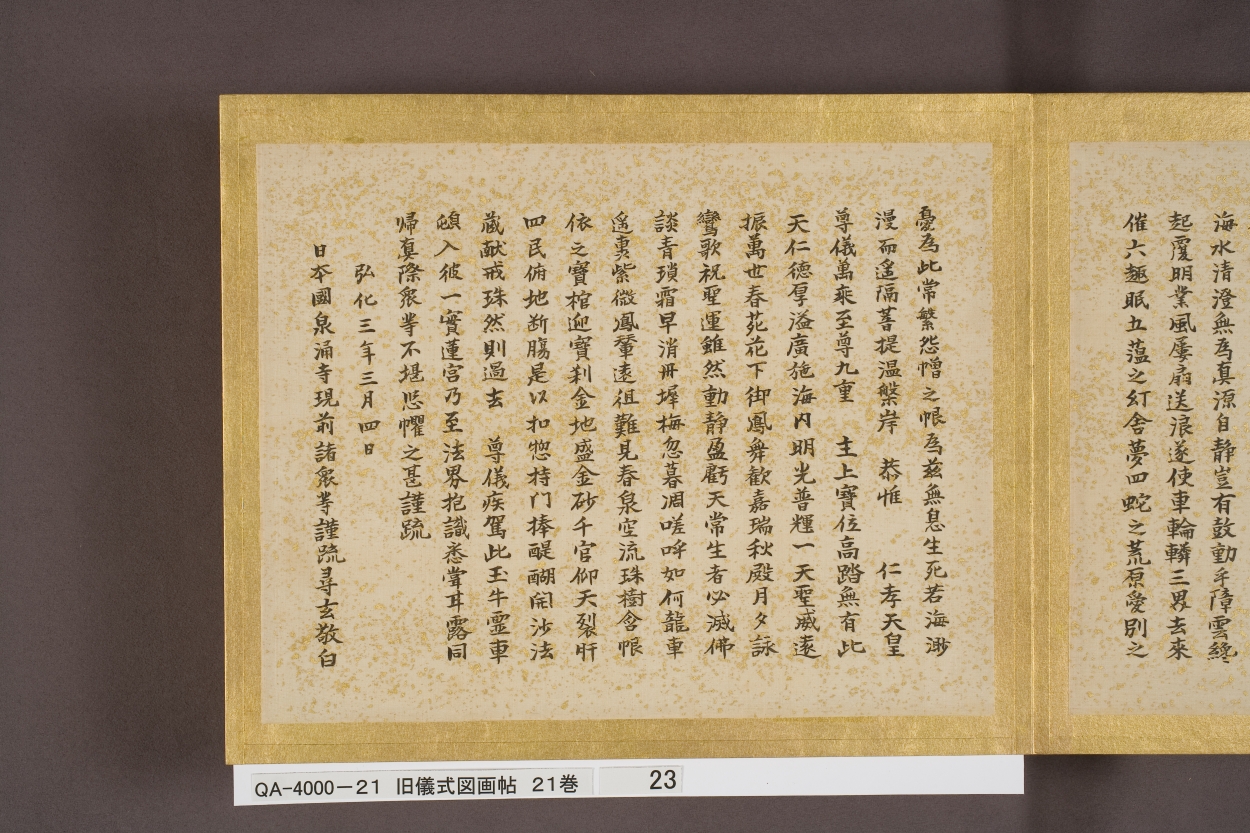 海水清澄無為真源自静豈有鼓動乎障雲纔
起覆明業風屡扇送浪遂使車輪轔三界去來
催六趣眠五薀之幻舎夢四蛇之荒原愛別之
憂為此常繁怨憎之恨為茲無息生死若海渺
漫而遥隔菩提温槃岸　恭惟　仁孝天皇
尊儀萬乘至尊九重　主上寶位高踏無有比
天仁德厚溢廣施海内明光普輝一天聖威遠
振萬世春苑花下御鳳舞歓嘉瑞秋殿月夕詠
鸞歌祝聖運雖然動静盈虧天常生者必滅佛
談青瑣霜早消丹墀梅忽暮凋嗟呼如何龍車
遥裏紫微鳳輦遠徂難見春泉空流珠樹含恨
依之寶棺迎寶刹金地盛金砂千官仰天裂肝
四民俯地断膓是以扣惣持门捧醍醐開沙法
蔵献戒珠然則過去　尊儀疾駕此玉牛霊車
頤入彼一實蓮宮乃至法界抱識悉聳耳露同
帰真際衆等不堪悲懼之甚謹疏
弘化三年三月四日
日本國泉涌寺現前諸衆等謹疏尋玄敬白
QA-4000-21 旧儀式図画帖 21巻
23